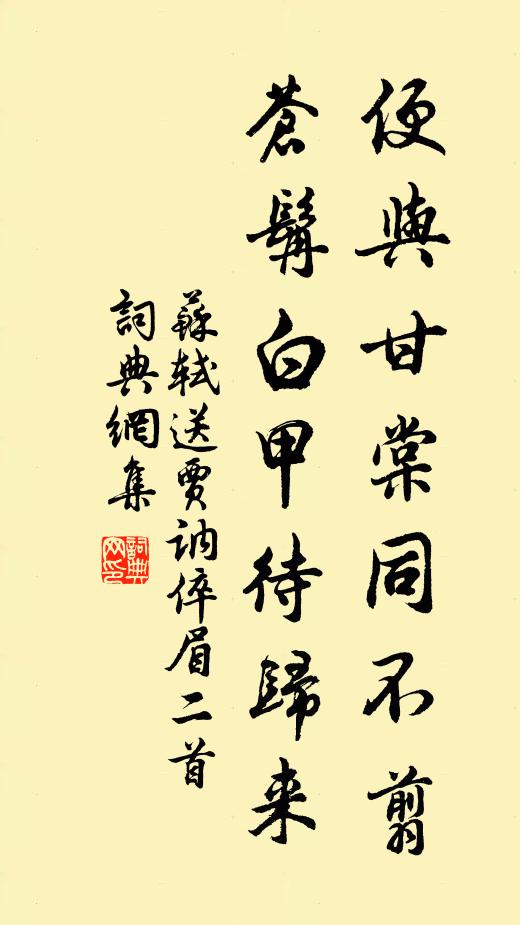 便與甘棠同不翦
蒼髯白甲待歸來
蘇軾送賈訥倅眉二首
詞典網集
詞典網印